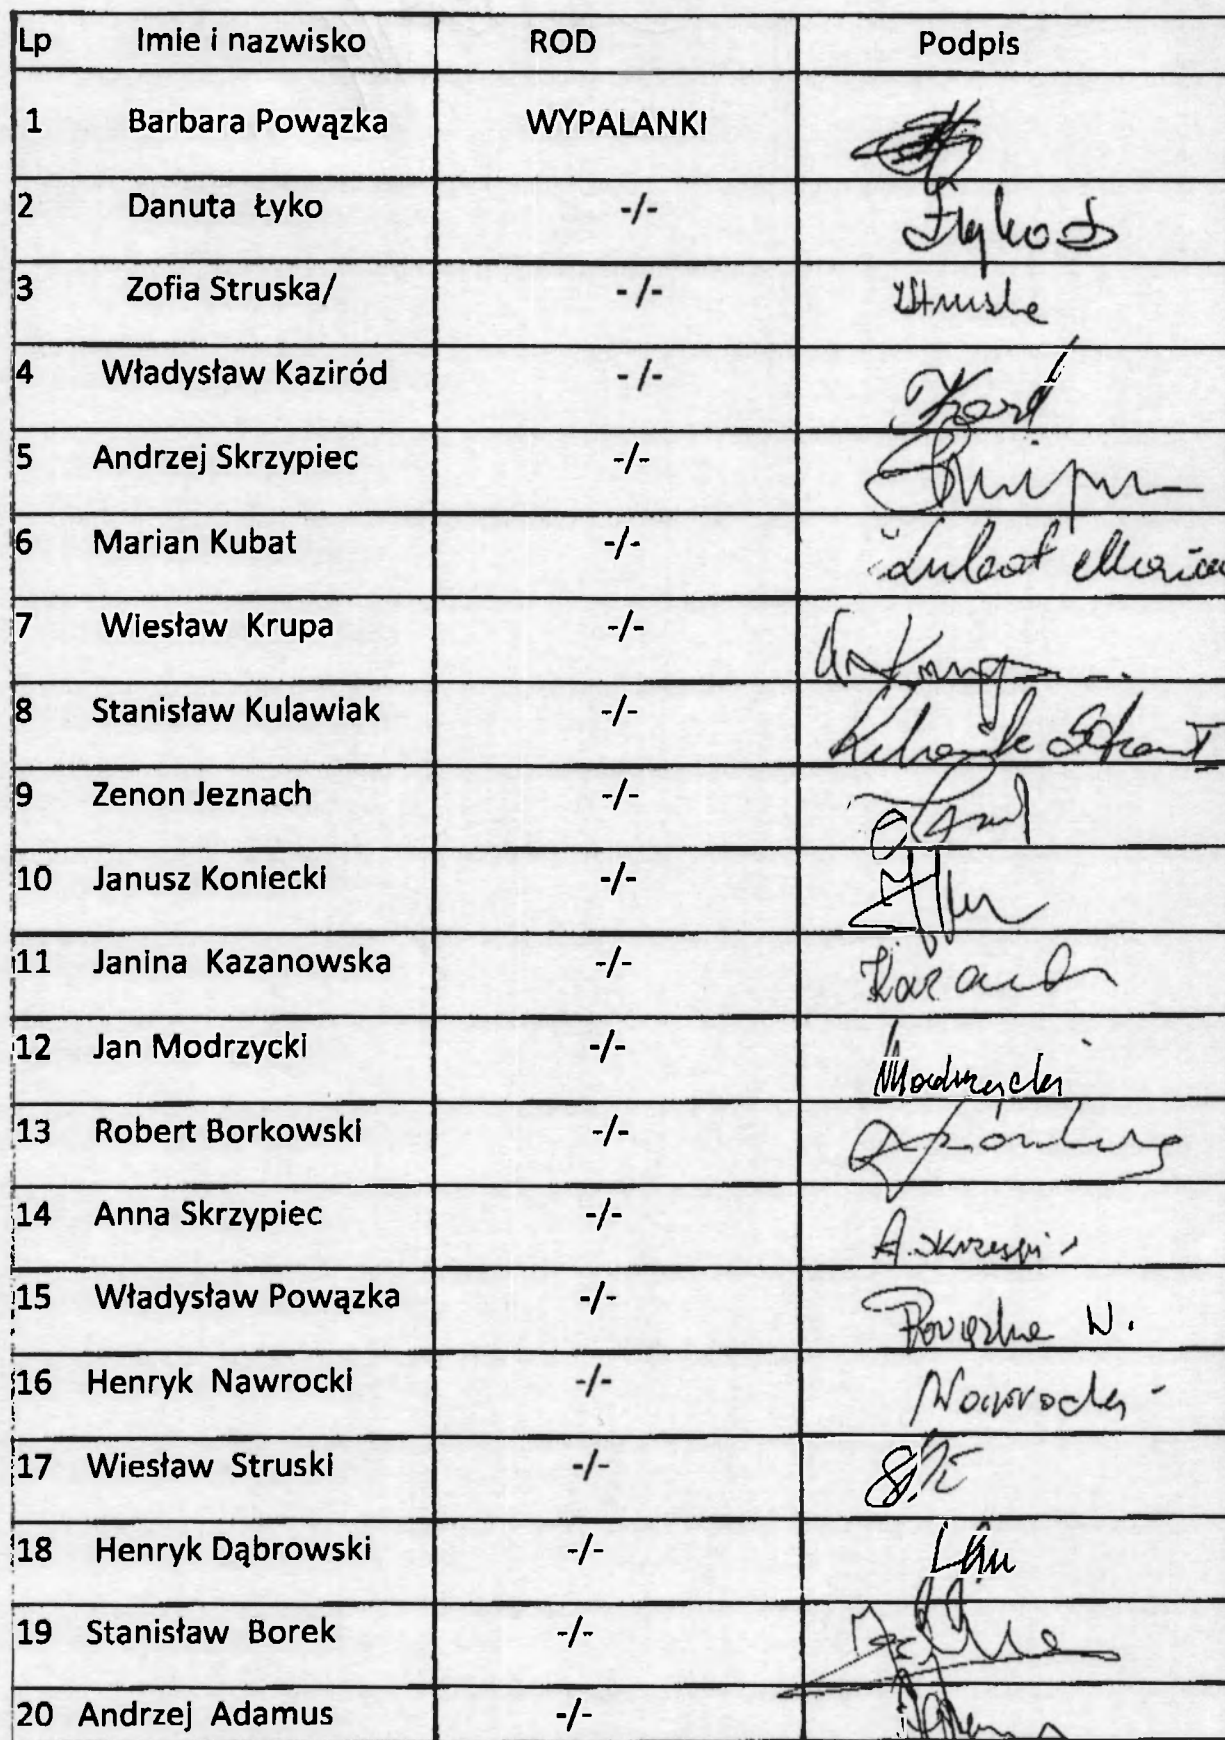 Lp Imie i nazwisko ROD Podpis
1 Barbara Powązka WYPALANKI
2 Danuta Łyko -/-
3 Zofia Struska/ -/-
4 Władysław Kaziród -/-
5 Andrzej Skrzypiec -/-
6 Marian Kubat -/-
7 Wiesław Krupa -/-
8 Stanisław Kulawiak -/-
9 Zenon Jeznach -/-
10 Janusz Koniecki -/-
11 Janina Kazanowska -/-
12 Jan Modrzycki -/-
13 Robert Borkowski -/-
14 Anna Skrzypiec -/-
15 Władysław Powązka -/- Powązka W.
16 Henryk Nawrocki -/- Nawrocki
17 Wiesław Struski -/-
18 Henryk Dąbrowski -/-
19 Stanisław Borek -/-
20 Andrzej Adamus -/-